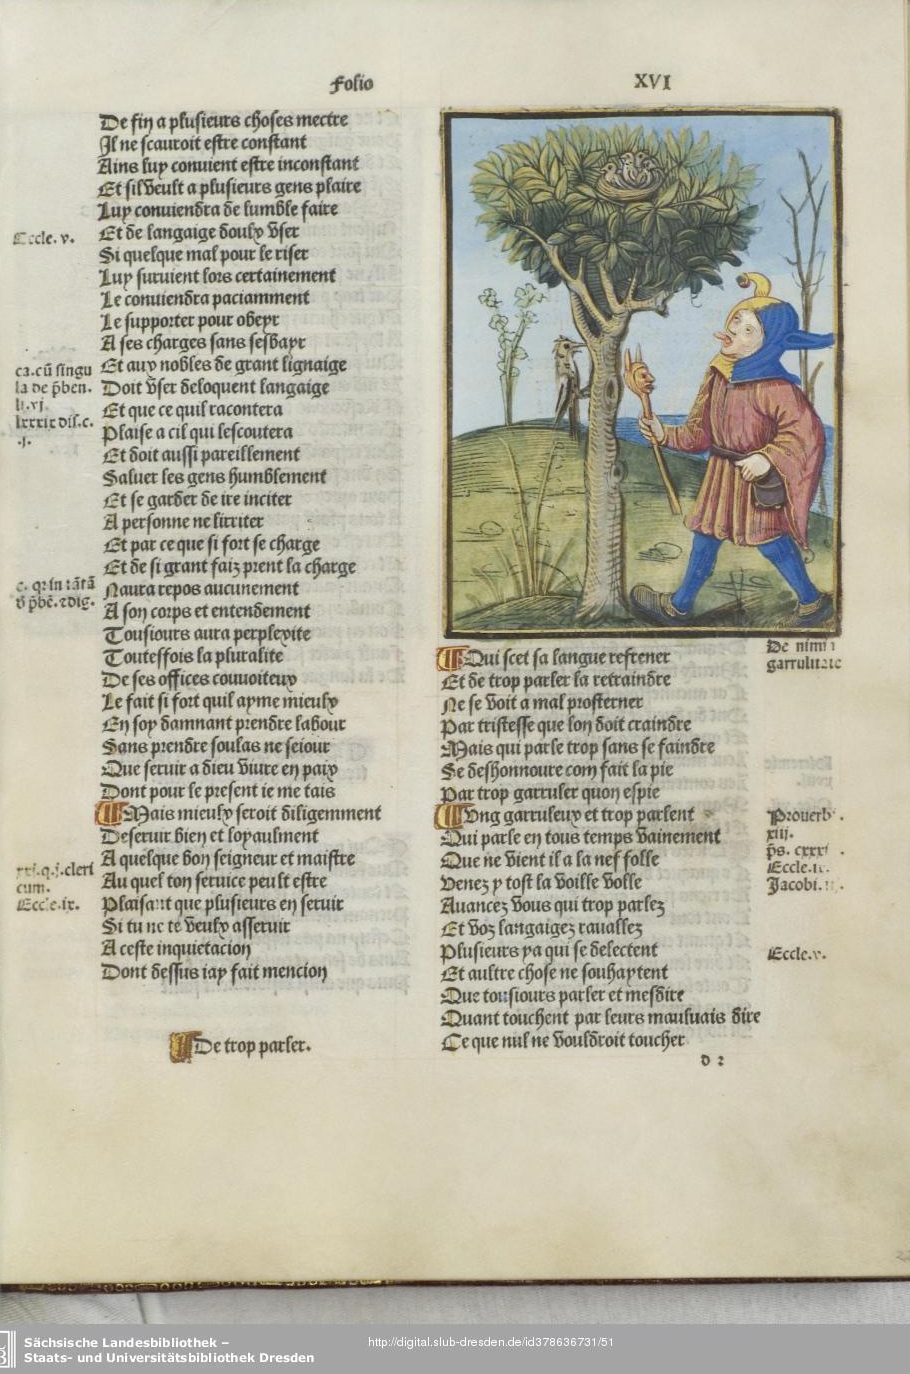 Folio
XVI
De fin a plusieurs choses mectre
Il ne scauroit estre constant
Ains luy conuient estre inconstant
Et sil veult a plusieurs gens plaire
Luy conuiendra de lumble faire
Et de langaige doulx vser
Si quelque mal pour le ruser
Luy suruient lors certainement
Le conuiendra paciamment
Le supporter pour obeyr
A ses charges sans sesbayr
Et aux nobles de grant lignaige
Doit vser deloquent langaige
Et que ce quil racontera
Plaise a cil qui lescoutera
Et doit aussi pareillement
Saluer les gens humblement
Et se garder de ire inciter
A personne ne lirriter
Et par ce que si fort se charge
Et de si grant faiz prent la charge
Naura repos aucunement
A son corps et entendement
Tousiours aura perplexite
Touteffois la pluralite
De ses offices couuoiteux
Le fait si fort quil ayme mieulx
En soy damnant prendre labour
Sans prendre soulas ne seiour
Que seruir a dieu viure en paix
Dont pour le present ie me tais
Mais mieulx seroit diligemment
Deseruir bien et loyaulment
A quelque bon seigneur et maistre
Au quel ton seruice peult estre
Plaisant que plusieurs en seruir
Si tu ne te veulx asseruir
A ceste inquietacion
Dont dessus iay fait mencion
De trop parler.
Eccle. v.
ca. cū singu
la de p̄ben.
li. vj
lxxxix dis. c.
.j.
c. qr in tātā
d p̄bē. ⁊ dig.
xxj. q. j. cleri
cum.
Eccle. ix.
Qui scet sa langue refrener
Et de trop parler la retraindre
Ne se voit a mal prosterner
Par tristesse que lon doit craindre
Mais qui parle trop sans se faindre
Se deshonnoure com fait la pie
Par trop garruler quon espie
Vng garruleux et trop parlent
Qui parle en tous temps vainement
Que ne vient il a la nef folle
Venez y tost la voille volle
Auancez vous qui trop parlez
Et voz langaigez rauallez
Plusieurs ya qui se delectent
Et aultre chose ne souhaytent
Que tousiours parler et mesdire
Quant touchent par leurs mauluais dire
Ce que nul ne vouldroit toucher
d 2
De nimi
garrulitate
Prouerb.
xiij.
p̄s. cxxxi
Eccle.
Jacobi.
Eccle. v.
Sächsische Landesbibliothek –
Staats- und Universitätsbibliothek Dresden
http://digital.slub-dresden.de/id378636731/51